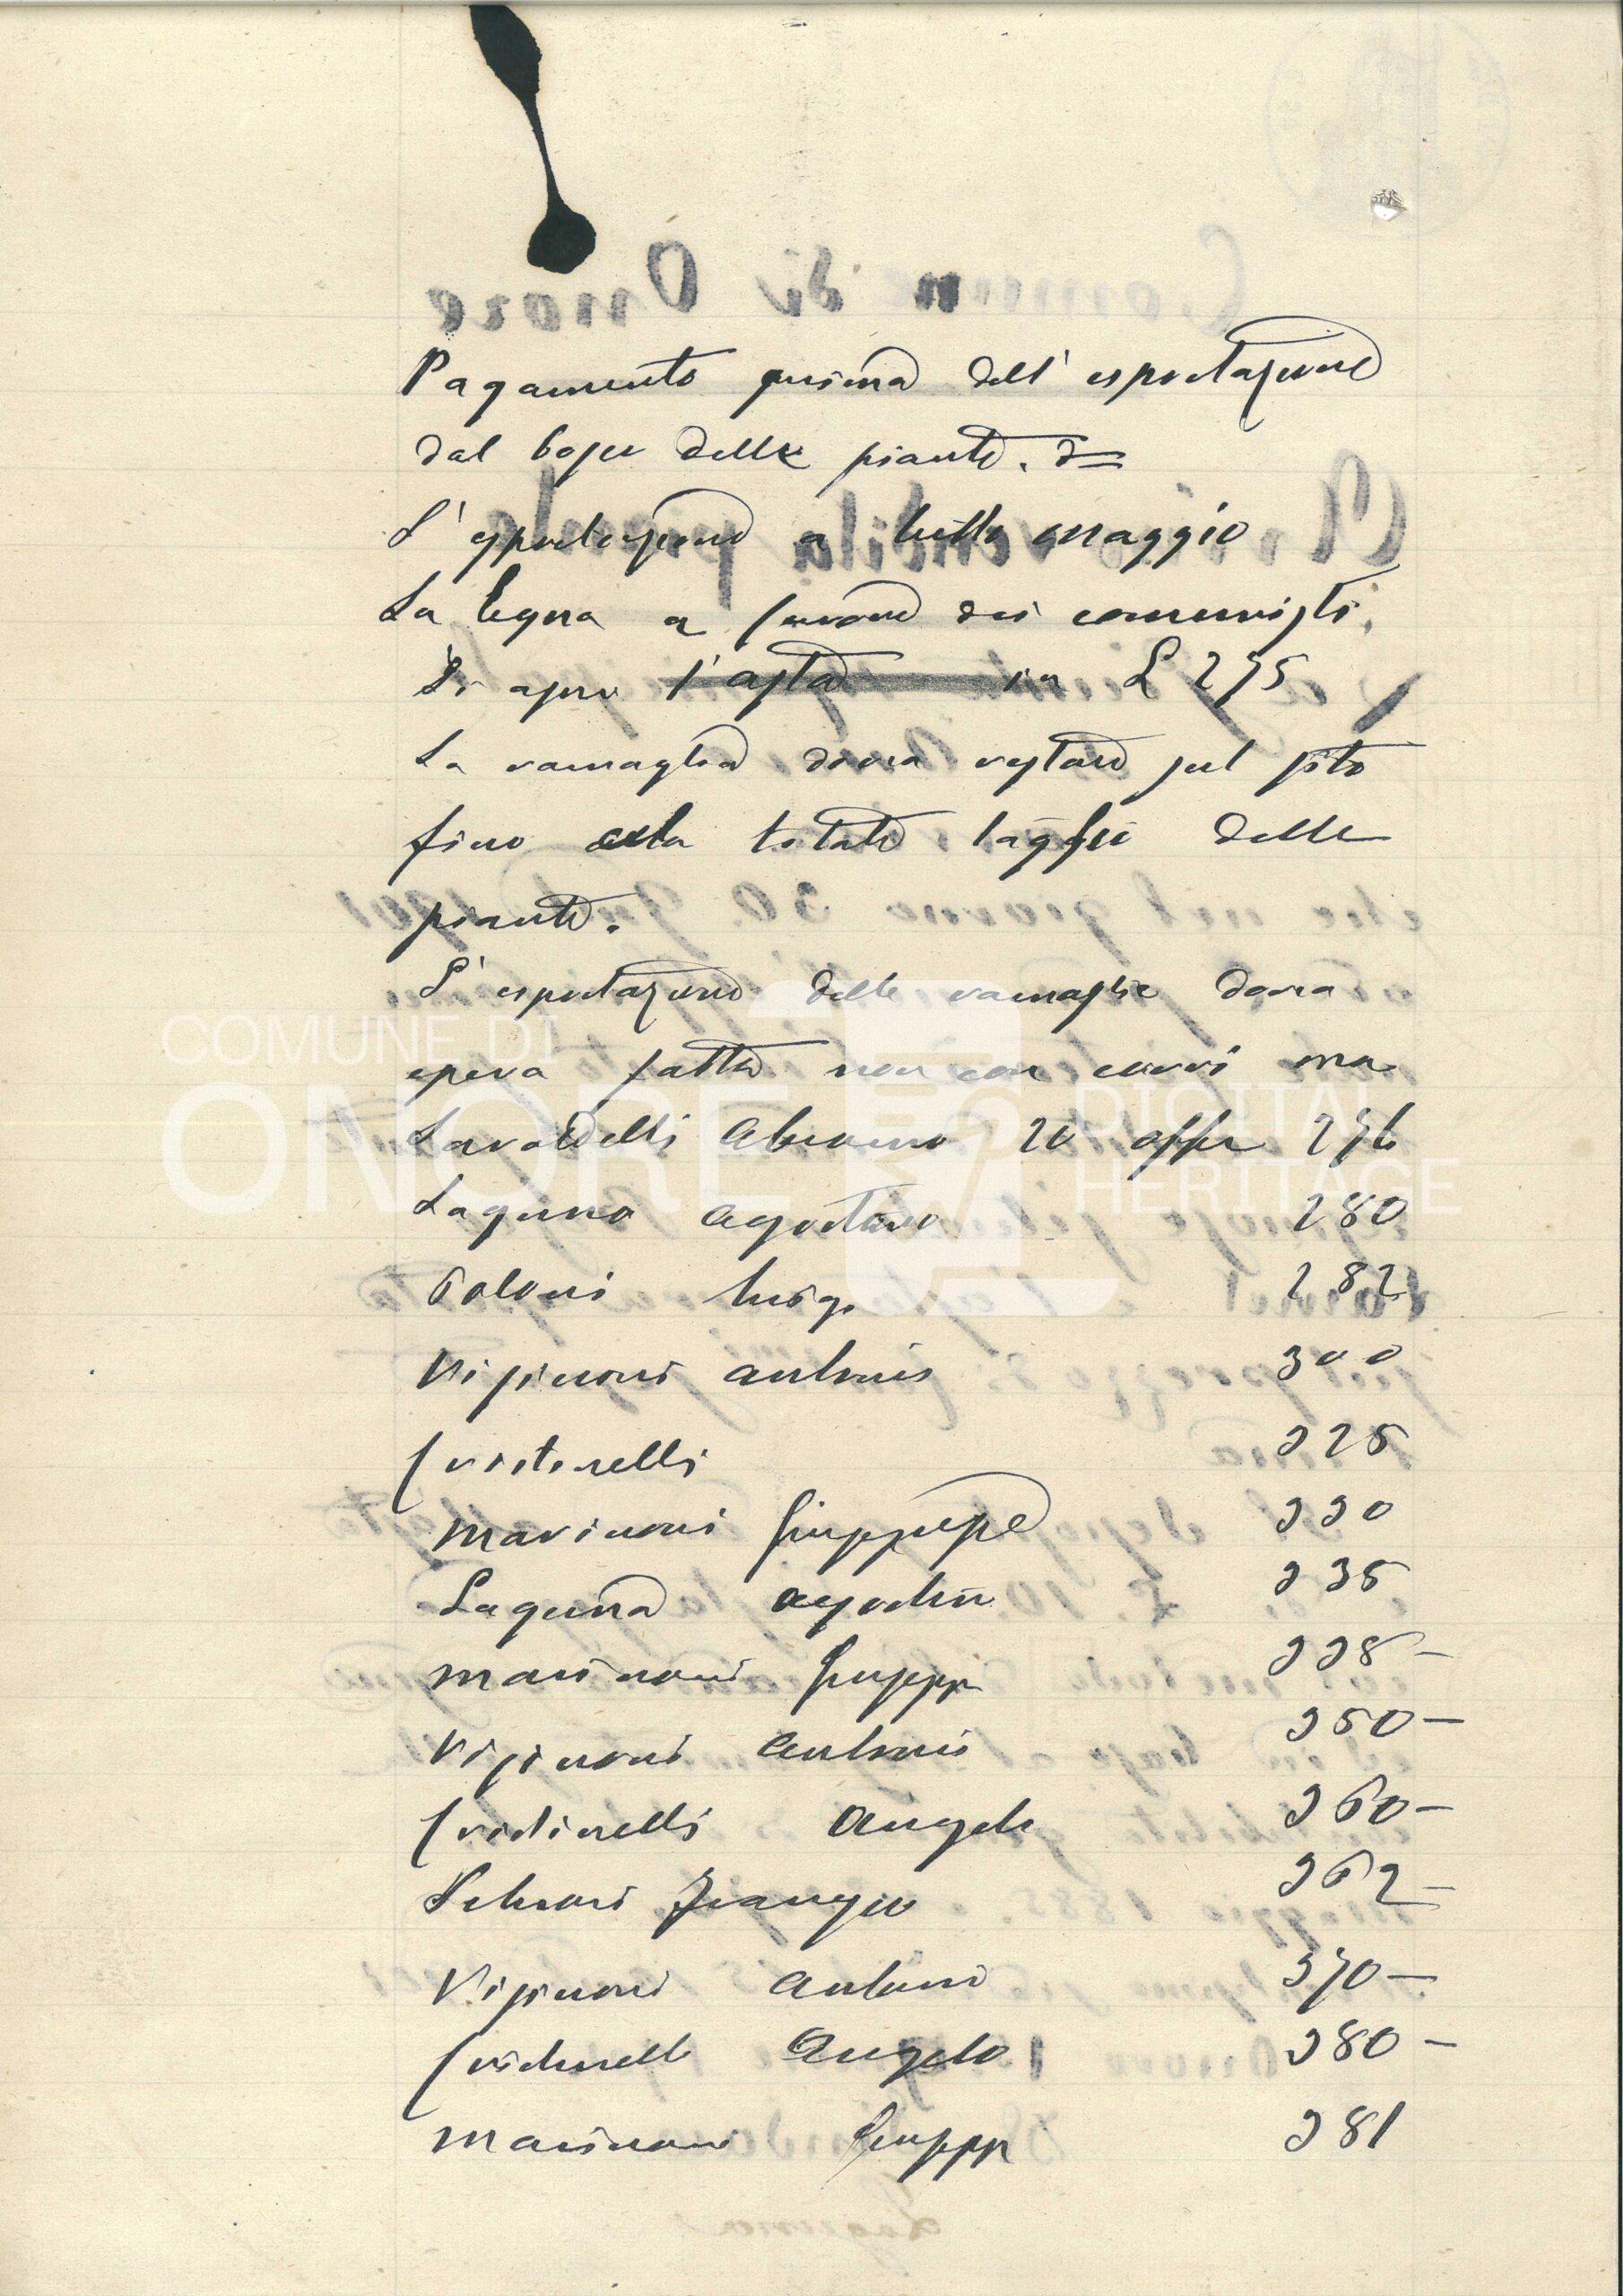 Pagamento prima dell'esportazione
dal bosco delle piante.
L'esportazione a tutto maggio
La legna a favore dei comunisti.
Si apre l'asta in L 275
La ramaglia dovrà restare sul sito
fino alla totale taglio delle
piante.
L'esportazione delle ramaglie dovrà
essere fatta non con carri ma
COMUNE DI
ONORE
DIGITAL
HERITAGE
Abramo offre 276
Laguna Agostino 280
Poloni Luigi 282
Visinoni Antonio 300
325
Marinoni Giuseppe 330
Laguna Agostino 335
Marinoni Giuseppe 338 -
Visinoni Antonio 350 -
Angelo 360 -
Schiavi 362 -
Visinoni Antonio 370 -
Angelo 380 -
Marinoni Giuseppe 381